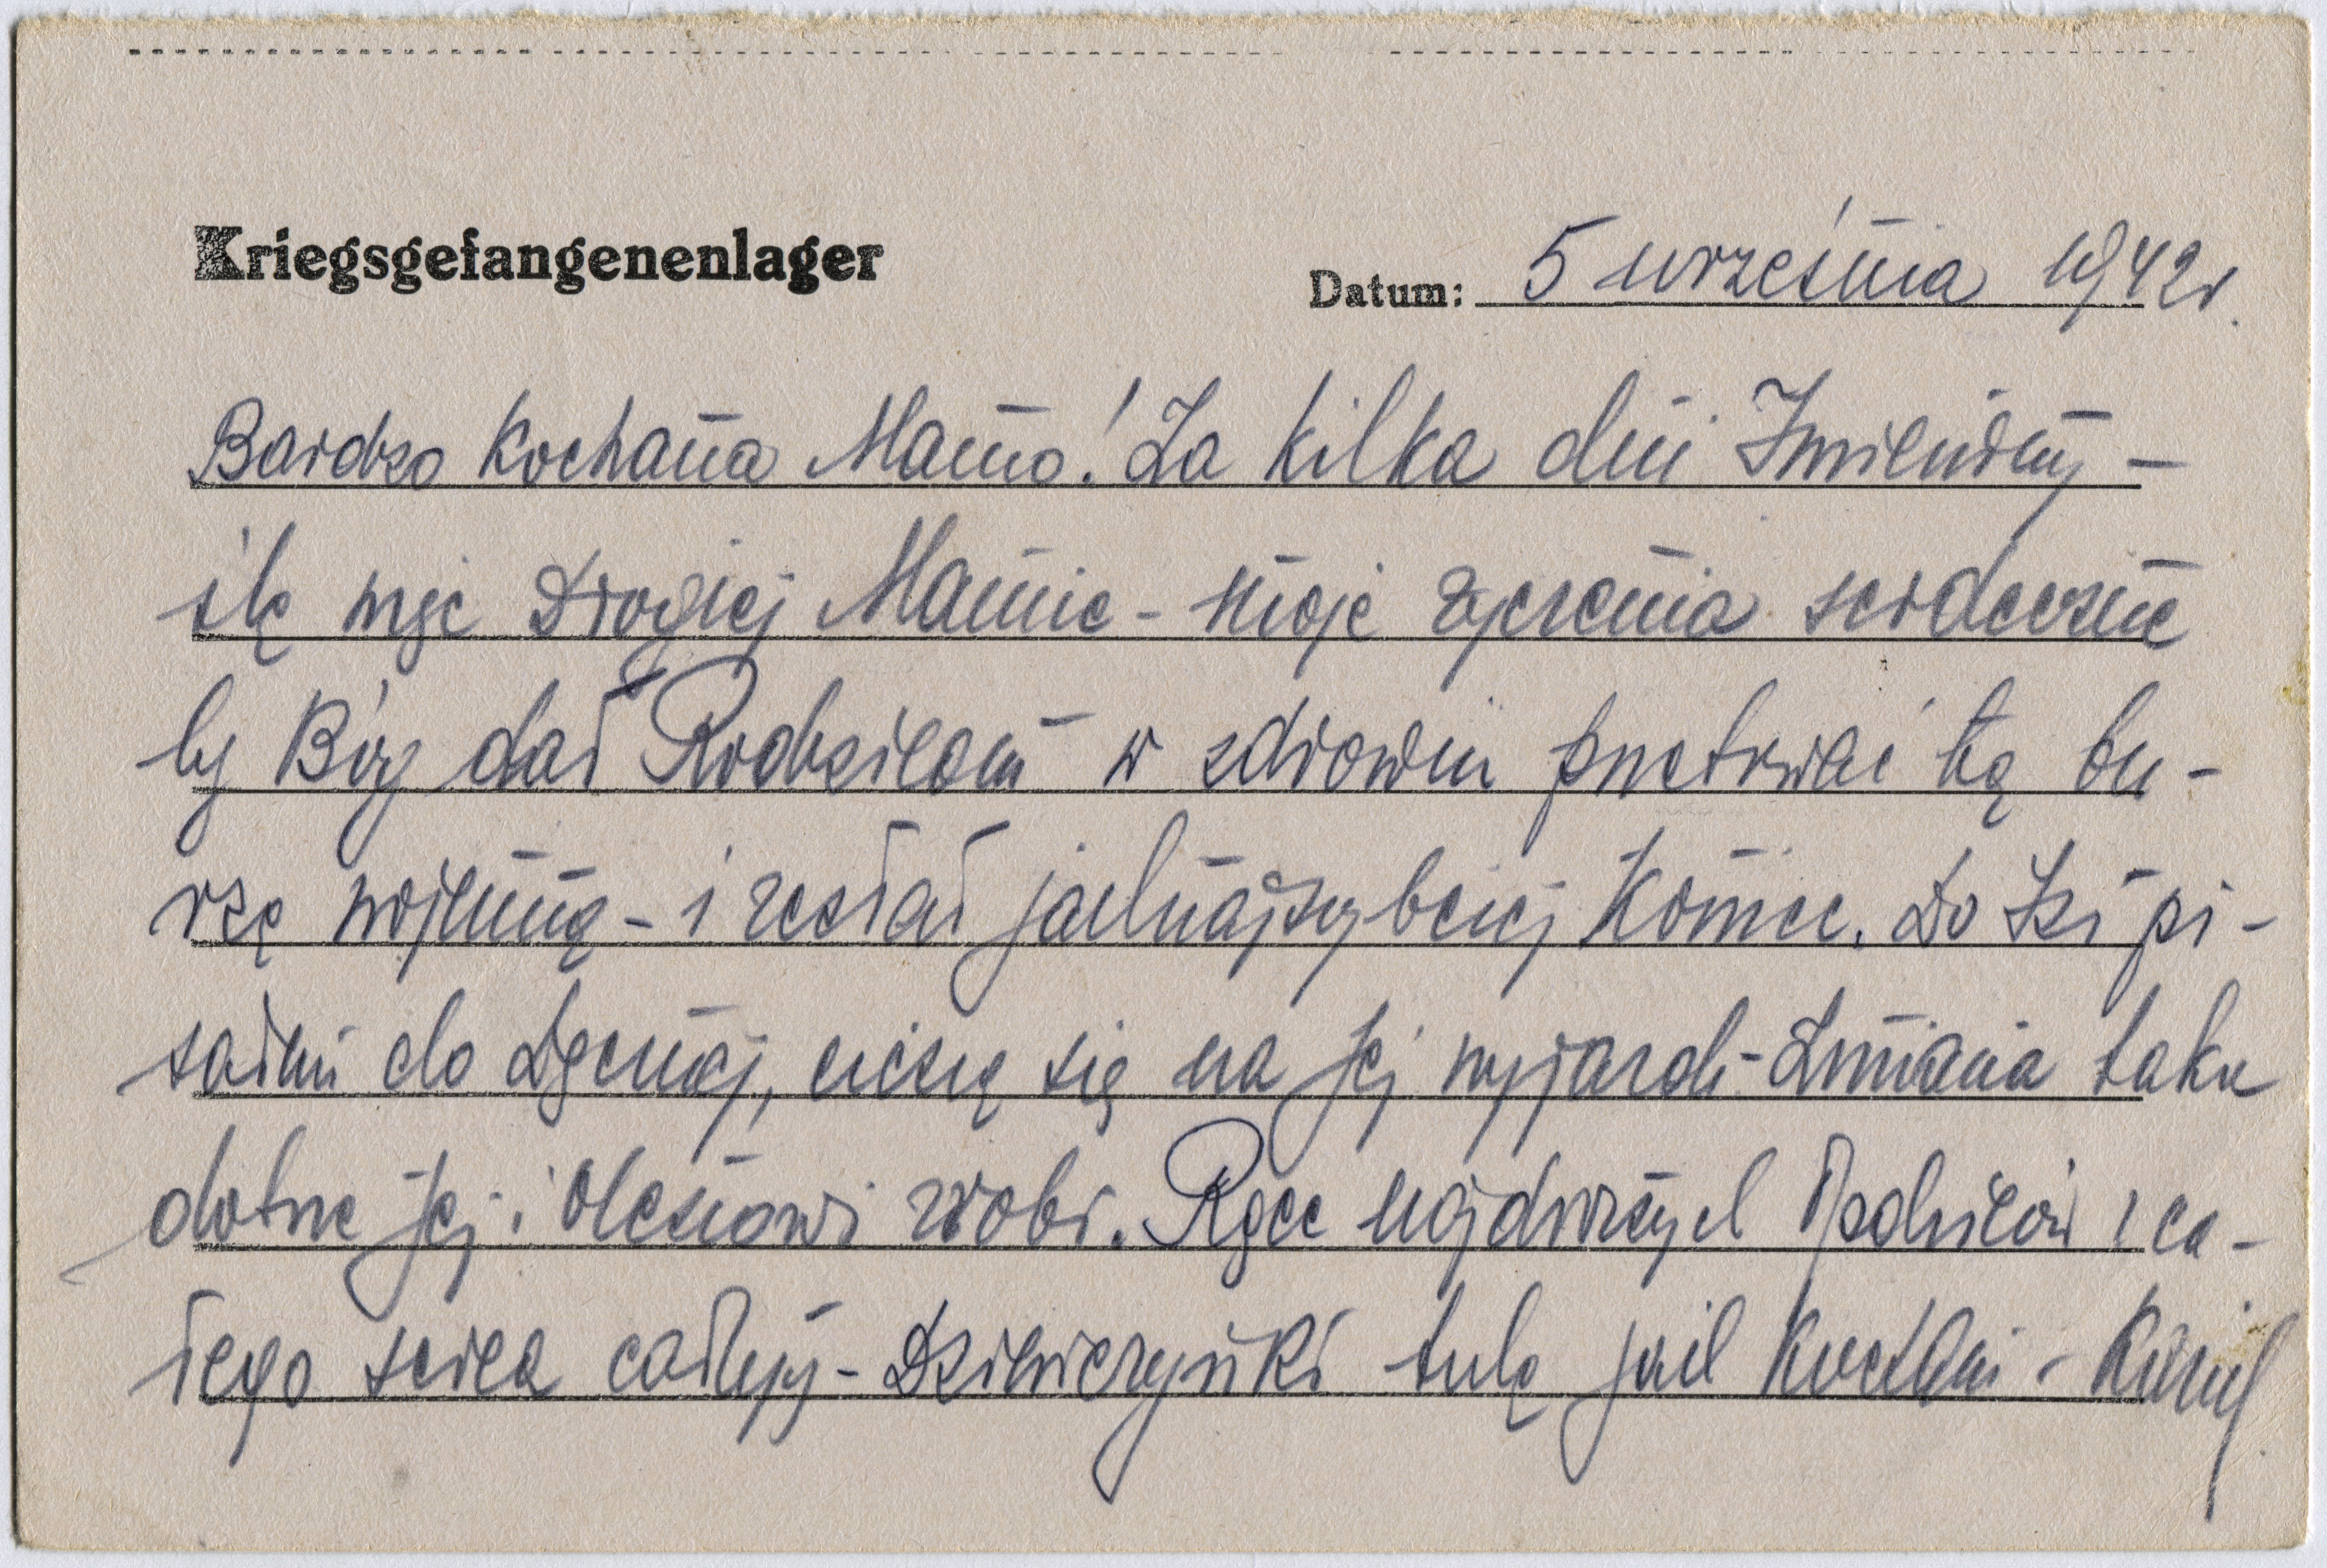 Kriegsgefangenenlager
Datum: 5 września 1942 r.
Bardzo Kochana Mamo! Za kilka dni Imieniny –
ślę więc Drogiej Mamie – moje życzenia serdeczne
by Bóg dał Rodzicom w zdrowiu przetrwać tą bu-
rzę wojenną – i zesłał jaknajszybciej Koniec. Do Izi pi-
sałem do , cieszę się na Jej wyjazd – Zmiana taka
dobrze Jej i Olesiowi zrobi. Ręce najdroższych Rodziców z ca-
łego serca całuję – Dziewczynki tulę jak Kocham – Kamil